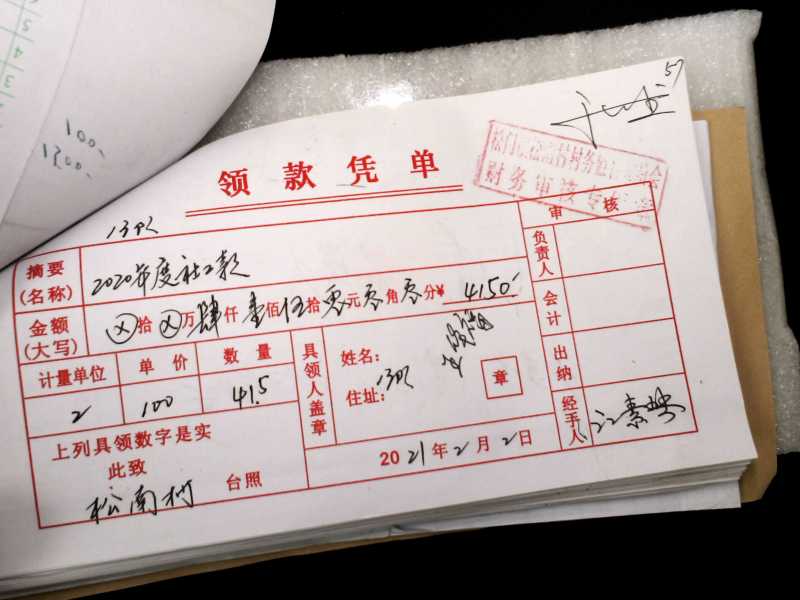 100.
1200.
57
领款凭单
财务审核专
13队
审核
摘要(名称)
2020年度社工款
负责人
金额(大写)
⊗拾⊗万肆仟壹佰伍拾零元零角零分¥ 4150
会计
计量单位 单价 数量
具领人盖章
姓名:
2 100 41.5
住址: 13队
章
出纳
上列具领数字是实
此致
松南村 台照
2021年2月2日
经手人